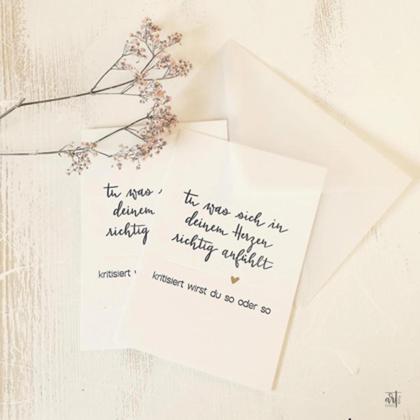 tu was
deinem
richtig
kritisiert
tu was sich in
deinem Herzen
richtig anfühlt
kritisiert wirst du so oder so
art